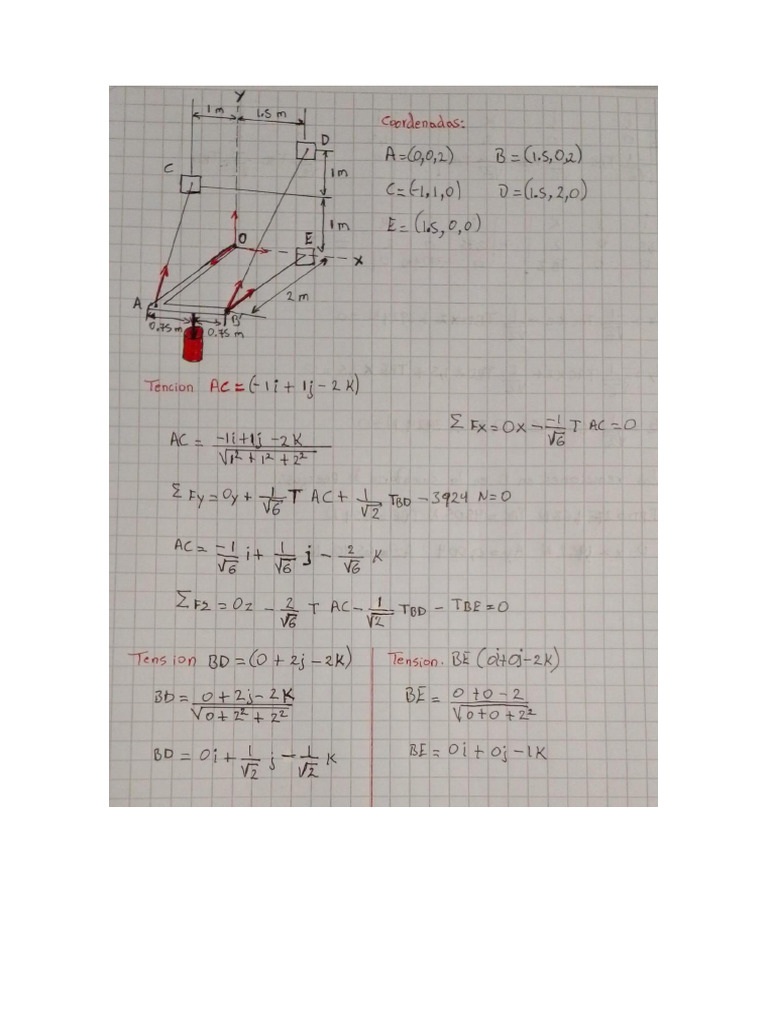 Y
1m 1.5 m
D
1m
C
1m
O E
X
2 m
A
B
0.75 m 0.75 m
Coordenadas:
A=(0,0,2) B=(1.5,0,2)
C=(-1,1,0) D=(1.5,2,0)
E=(1.5,0,0)
Tencion AC=(-1i+1j-2K)
ΣFx=0x-\frac{-1}{√6}T AC=0
AC=\frac{-1i+1j-2K}{√1²+1²+2²}
ΣFy=0y+\frac{1}{√6}T AC+\frac{1}{√2}TBD-3924 N=0
AC=\frac{-1}{√6}i+\frac{1}{√6}j-\frac{2}{√6}K
ΣFz=0z-\frac{2}{√6}T AC-\frac{1}{√2}TBD-TBE=0
Tension BD=(0+2j-2K)
BD=\frac{0+2j-2K}{√0+2²+2²}
BD=0i+\frac{1}{√2}j-\frac{1}{√2}K
Tension. BE(0i+0j-2K)
BE=\frac{0+0-2}{√0+0+2²}
BE=0i+0j-1K